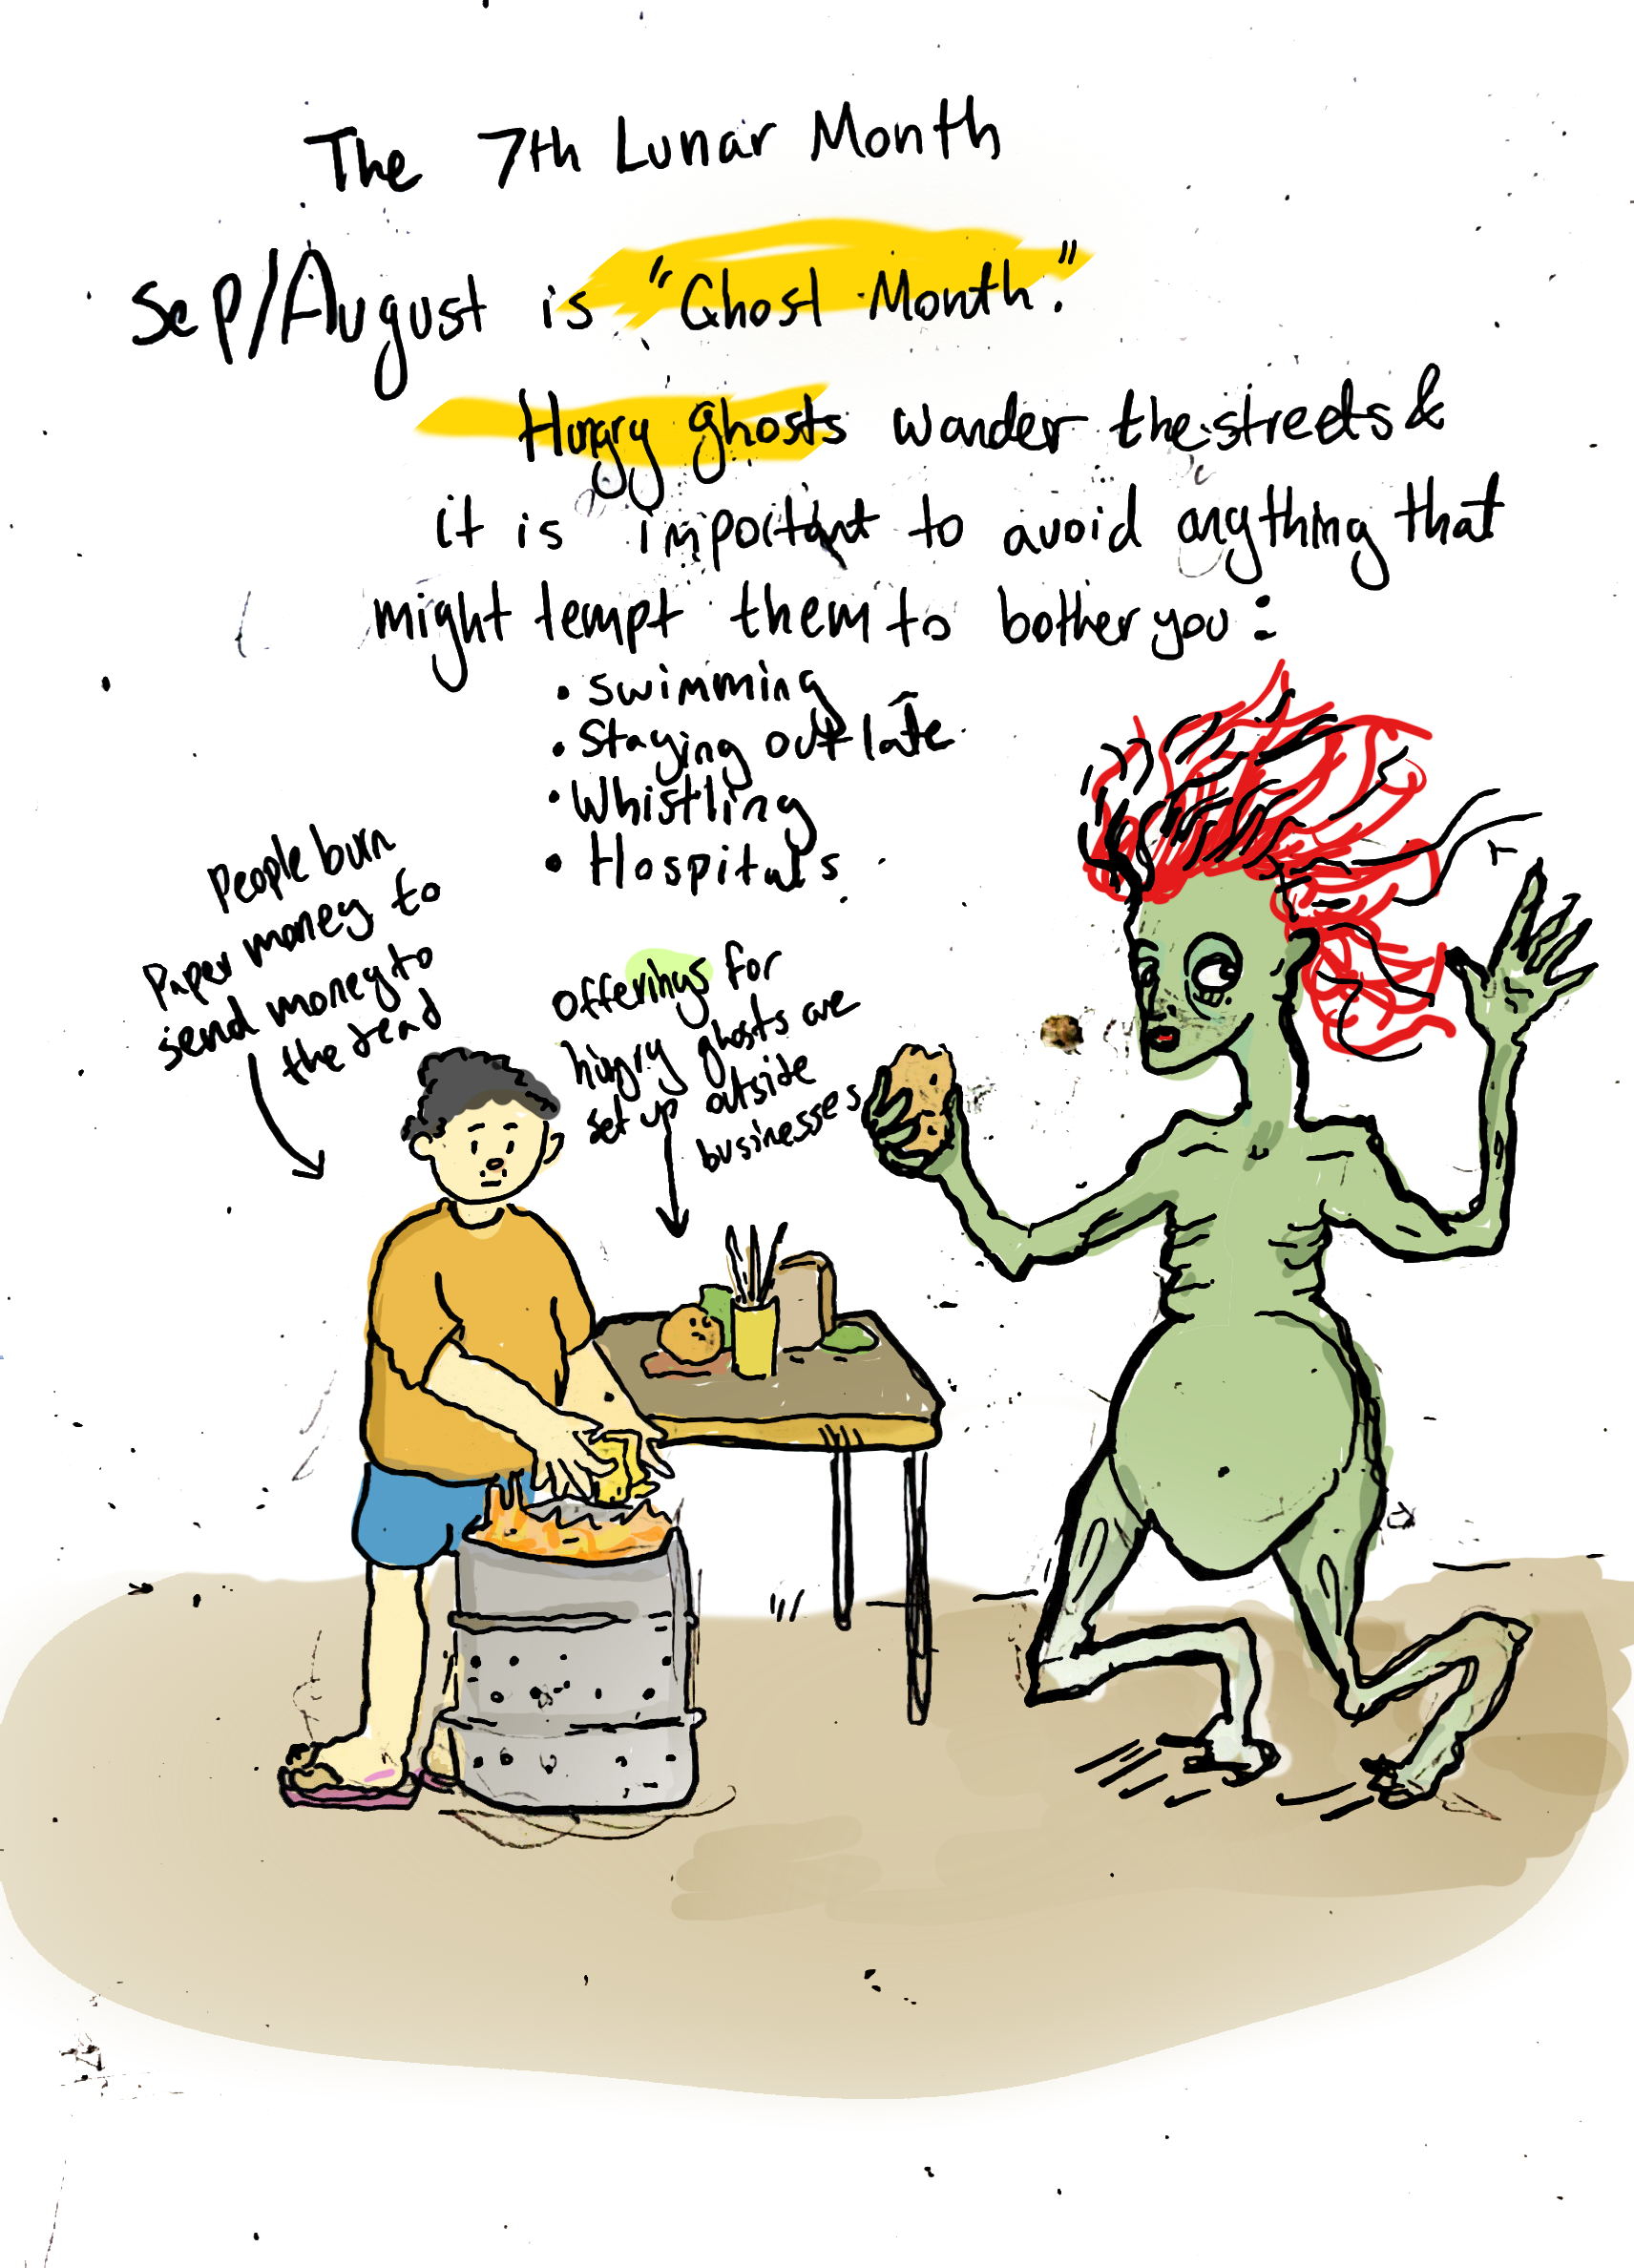 The 7th Lunar Month
Sep/August is "Ghost Month."
Hungry ghosts wander the streets &
it is important to avoid anything that
might tempt them to bother you:
• swimming
• Staying out late
• Whistling
• Hospitals
People burn
Paper money to
send money to
the dead
offerings for
hungry ghosts are
set up outside
businesses